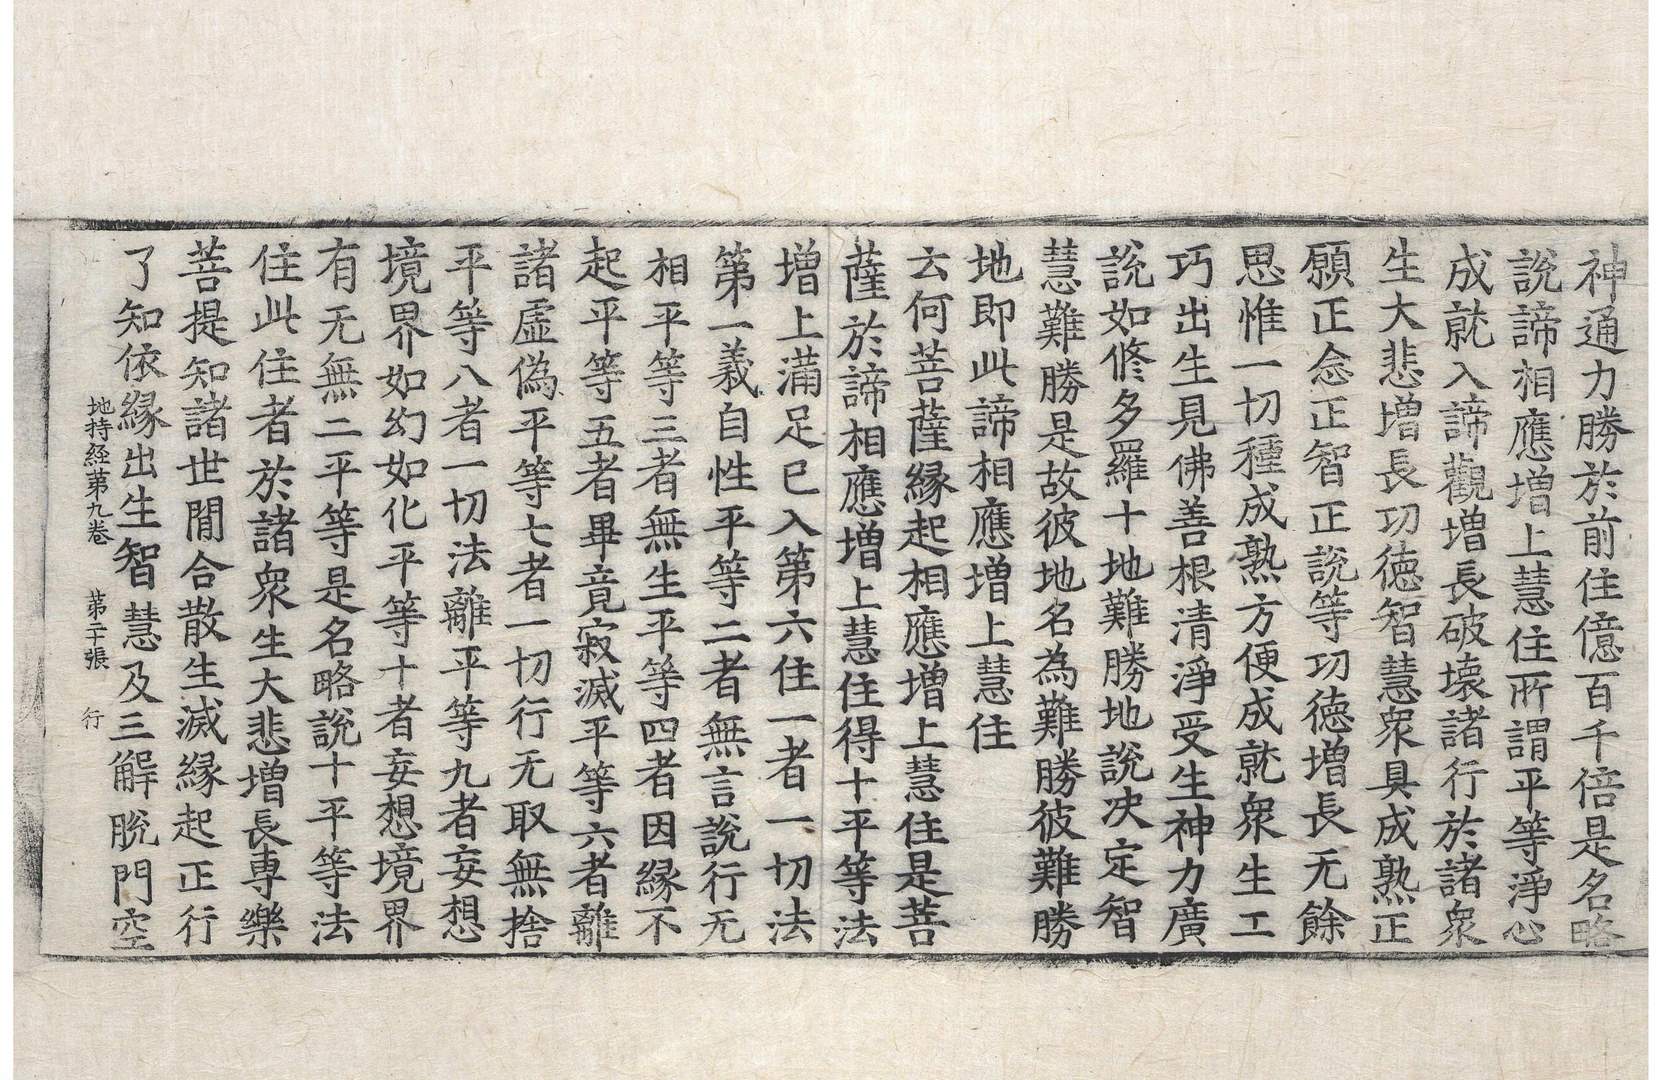 神通力勝於前住億百千倍是名略
說諦相應增上慧住所謂平等淨心
成就入諦觀增長破壞諸行於諸衆
生大悲增長功德智慧衆具成熟正
願正念正智正說等功德增長无餘
思惟一切種成熟方便成就衆生工
巧出生見佛善根清淨受生神力廣
說如修多羅十地難勝地說決定智
慧難勝是故彼地名為難勝彼難勝
地即此諦相應增上慧住
云何菩薩緣起相應增上慧住是菩
薩於諦相應增上慧住得十平等法
增上滿足已入第六住一者一切法
第一義自性平等二者無言說行无
相平等三者無生平等四者因緣不
起平等五者畢竟寂滅平等六者離
諸虛偽平等七者一切行无取無捨
平等八者一切法離平等九者妄想
境界如幻如化平等十者妄想境界
有无無二平等是名略說十平等法
住此住者於諸衆生大悲增長專樂
菩提知諸世間合散生滅緣起正行
了知依緣出生智慧及三解脫門空
地持經第九卷　第二十張　行